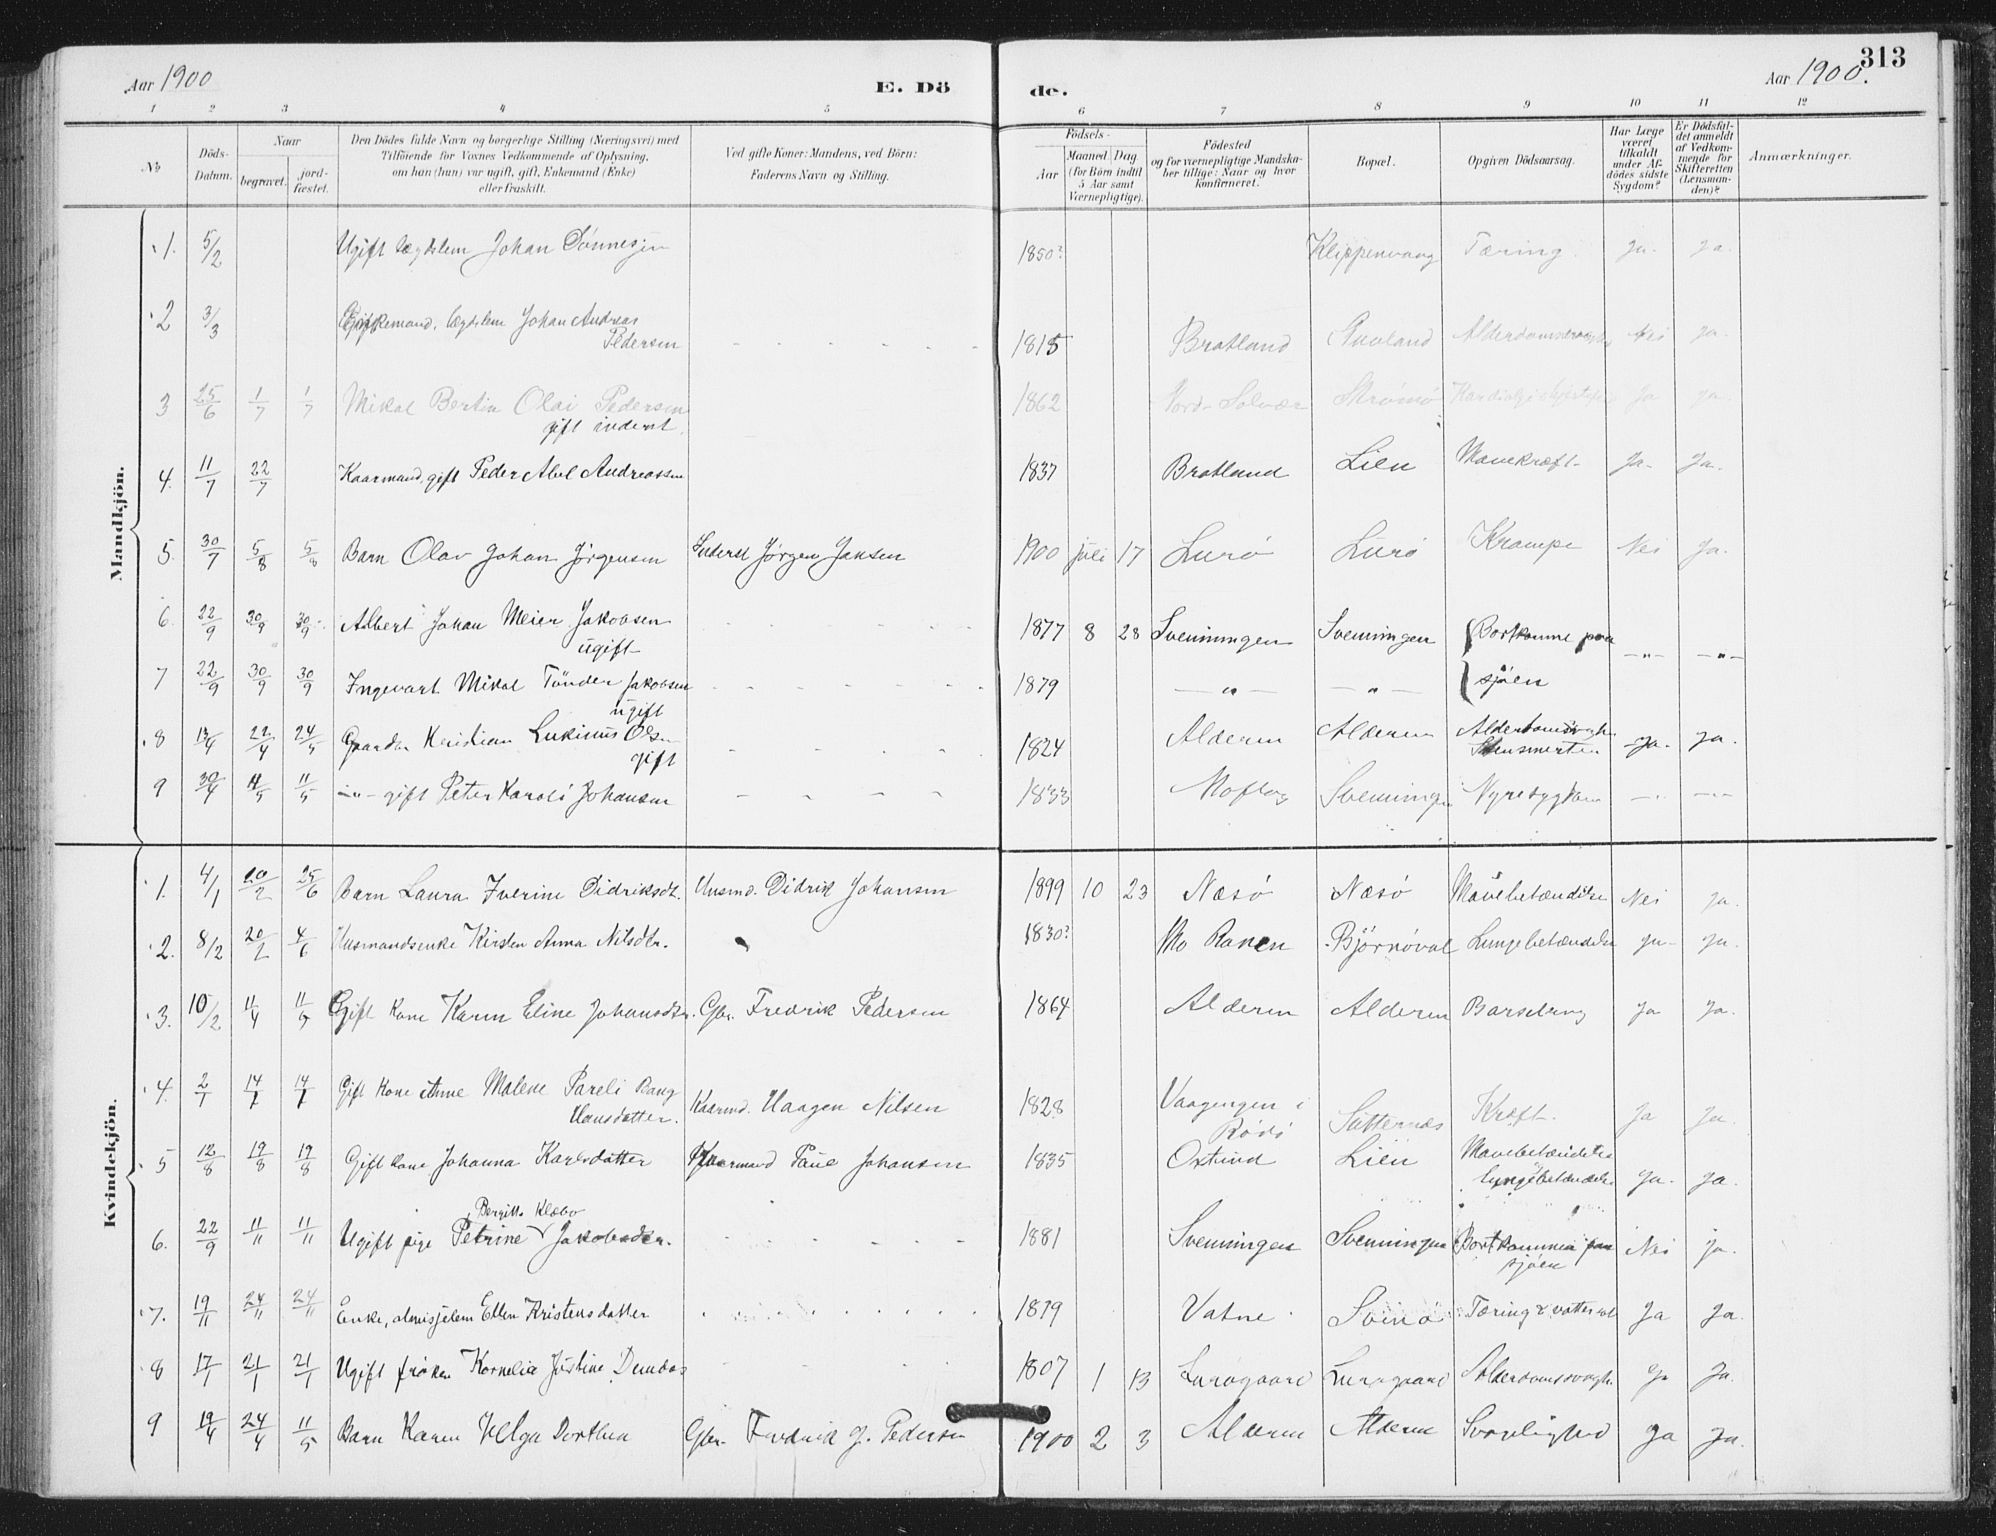 Aar 1900
E. Dö
de.
Aar 1900.
313
1 2 3 4 5 6 7 8 9 10 11 12
No
Döds-
Datum.
Naar
begravet.
jord-
fæstet.
Den Dödes fulde Navn og borgerlige Stilling (Næringsvei) med
Tilföiende for Voxnes Vedkommende af Oplysning,
om han (hun) var ugift, gift, Enkemand (Enke)
eller fraskilt.
Ved gifte Koner: Mandens, ved Börn:
Faderens Navn og Stilling.
Födsels-
Aar
Maaned
Dag
(for Börn indtil
5 Aar samt
Værnepligtige).
Födested
og for værnepligtige Mandska-
ber tillige: Naar og hvor
konfirmeret.
Bopæl.
Opgiven Dödsaarsag.
Har Læge
været
tilkaldt
under Af-
dödes sidste
Sygdom?
Er Dödsfal-
det anmeldt
af Vedkom-
mende for
Skifteretten
(Lensman-
den)?
Anmærkninger.
Mandkjön.
1. 5/2 Ugift lægdslem Johan Tönnesen 1850? Klippenvaag Tæring. Ja. Ja.
2 3/3 Enkemand, lægdslem Johan Andreas
Pedersen 1815 Bratland Alderdomssvagh. Nei Ja.
3 25/6 1/7 1/7 Mikal Bertin Olai Pedersen 1862 Nord-Solvær Ja Ja.
gift inderst.
4. 11/7 22/7 Kaarmand, gift Peder Abel Andreassen 1837 Bratland Lien Mavekræft Ja. Ja.
5. 30/7 5/8 5/8 Barn Olav Johan Jörgensen Inderst Jørgen Jansen 1900 juli 17 Lurö Lurö Krampe Nei Ja.
6. 22/9 30/9 30/9 Albert Johan Meier Jakobsen 1877 8 28 Svenningen Svenningen Bortkomne paa -"- -"-
ugift
7 22/9 30/9 30/9 Ingevart Mikal Tönder Jakobsen 1879 -"- -"- sjöen
ugift
8 13/4 22/4 24/5 Gaardm. Kristian Lukinus Olsen 1824 Alderen Alderen Alderdomssvagh.
Stensmerter Ja. Ja.
gift
9 30/4 11/5 11/5 -"- gift Peter Karoli Johansen 1833 Svenningen Nyresygdom -"- -"-
Kvindekjön.
1. 4/1 20/2 25/6 Barn Laura Iverine Didriksdt. Husmd. Didrik Johansen 1899 10 23 Næsö Næsö Mavebetændelse Nei Ja.
2. 8/2 20/2 4/6 Husmandsenke Kirsten Anna Nilsdtr. 1830? Mo Ranen Björnöval Lungebetændelse Ja Ja.
3. 10/2 11/4 11/5 Gift Kone Karen Eline Johansdtr. Gbr. Fredrik Pedersen 1864 Alderen Alderen Barseltung Ja Ja.
4. 2/1 14/1 14/1 Gift Kone Anne Malene Pareli Bang
Hansdatter. Kaarmd. Haagen Nilsen 1828 Vaagengen i
Rödö Sætternæs Kræft. Ja Ja.
5 12/8 19/8 19/8 Gift Kone Johanna Karlsdatter Kaarmand Paul Johansen 1835 Oxtind Lien Mavebetændelse
lungebetændelse Ja. Ja.
Bergitte Klæbo
6. 22/9 11/11 11/11 Ugift pige Petrine Jakobsdtr. 1881 Svenningen Svenningen Bortkommen paa
sjöen Nei ja.
7. 19/11 24/11 24/11 Enke, almisselem Ellen Kristensdatter 1819 Vatne Svinö Tæring & vattersot Ja Ja.
8 17/1 21/1 21/1 Ugift fröken Kornelia Justine Dundas 1807 1 13 Lurögaard Lurögaard Alderdomssvagh. Ja Ja.
9 19/4 24/4 11/5 Barn Karen Helga Dorthea Gbr. Fredrik J. Pedersen 1900 2 3 Alderen Alderen Svagelighed Ja Ja.